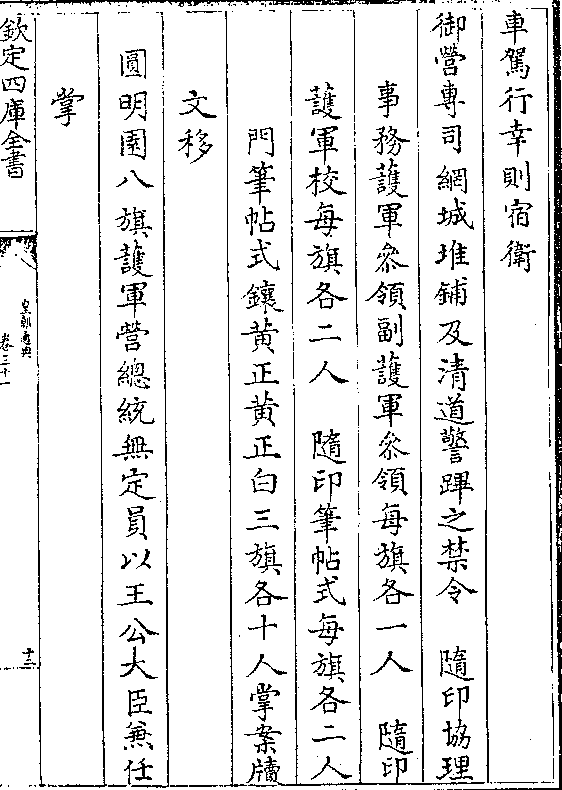 車駕行幸則宿衛
御營專司網城堆鋪及清道警蹕之禁令　隨印協理
事務護軍叅領副護軍叅領每旗各一人　隨印
護軍校每旗各二人　隨印筆帖式每旗各二人
門筆帖式鑲黃正黃正白三旗各十人掌案牘
文移
圓明園八旗護軍營總統無定員以王公大臣兼任
掌
欽定四庫全書
皇朝通典
卷三十一
十三